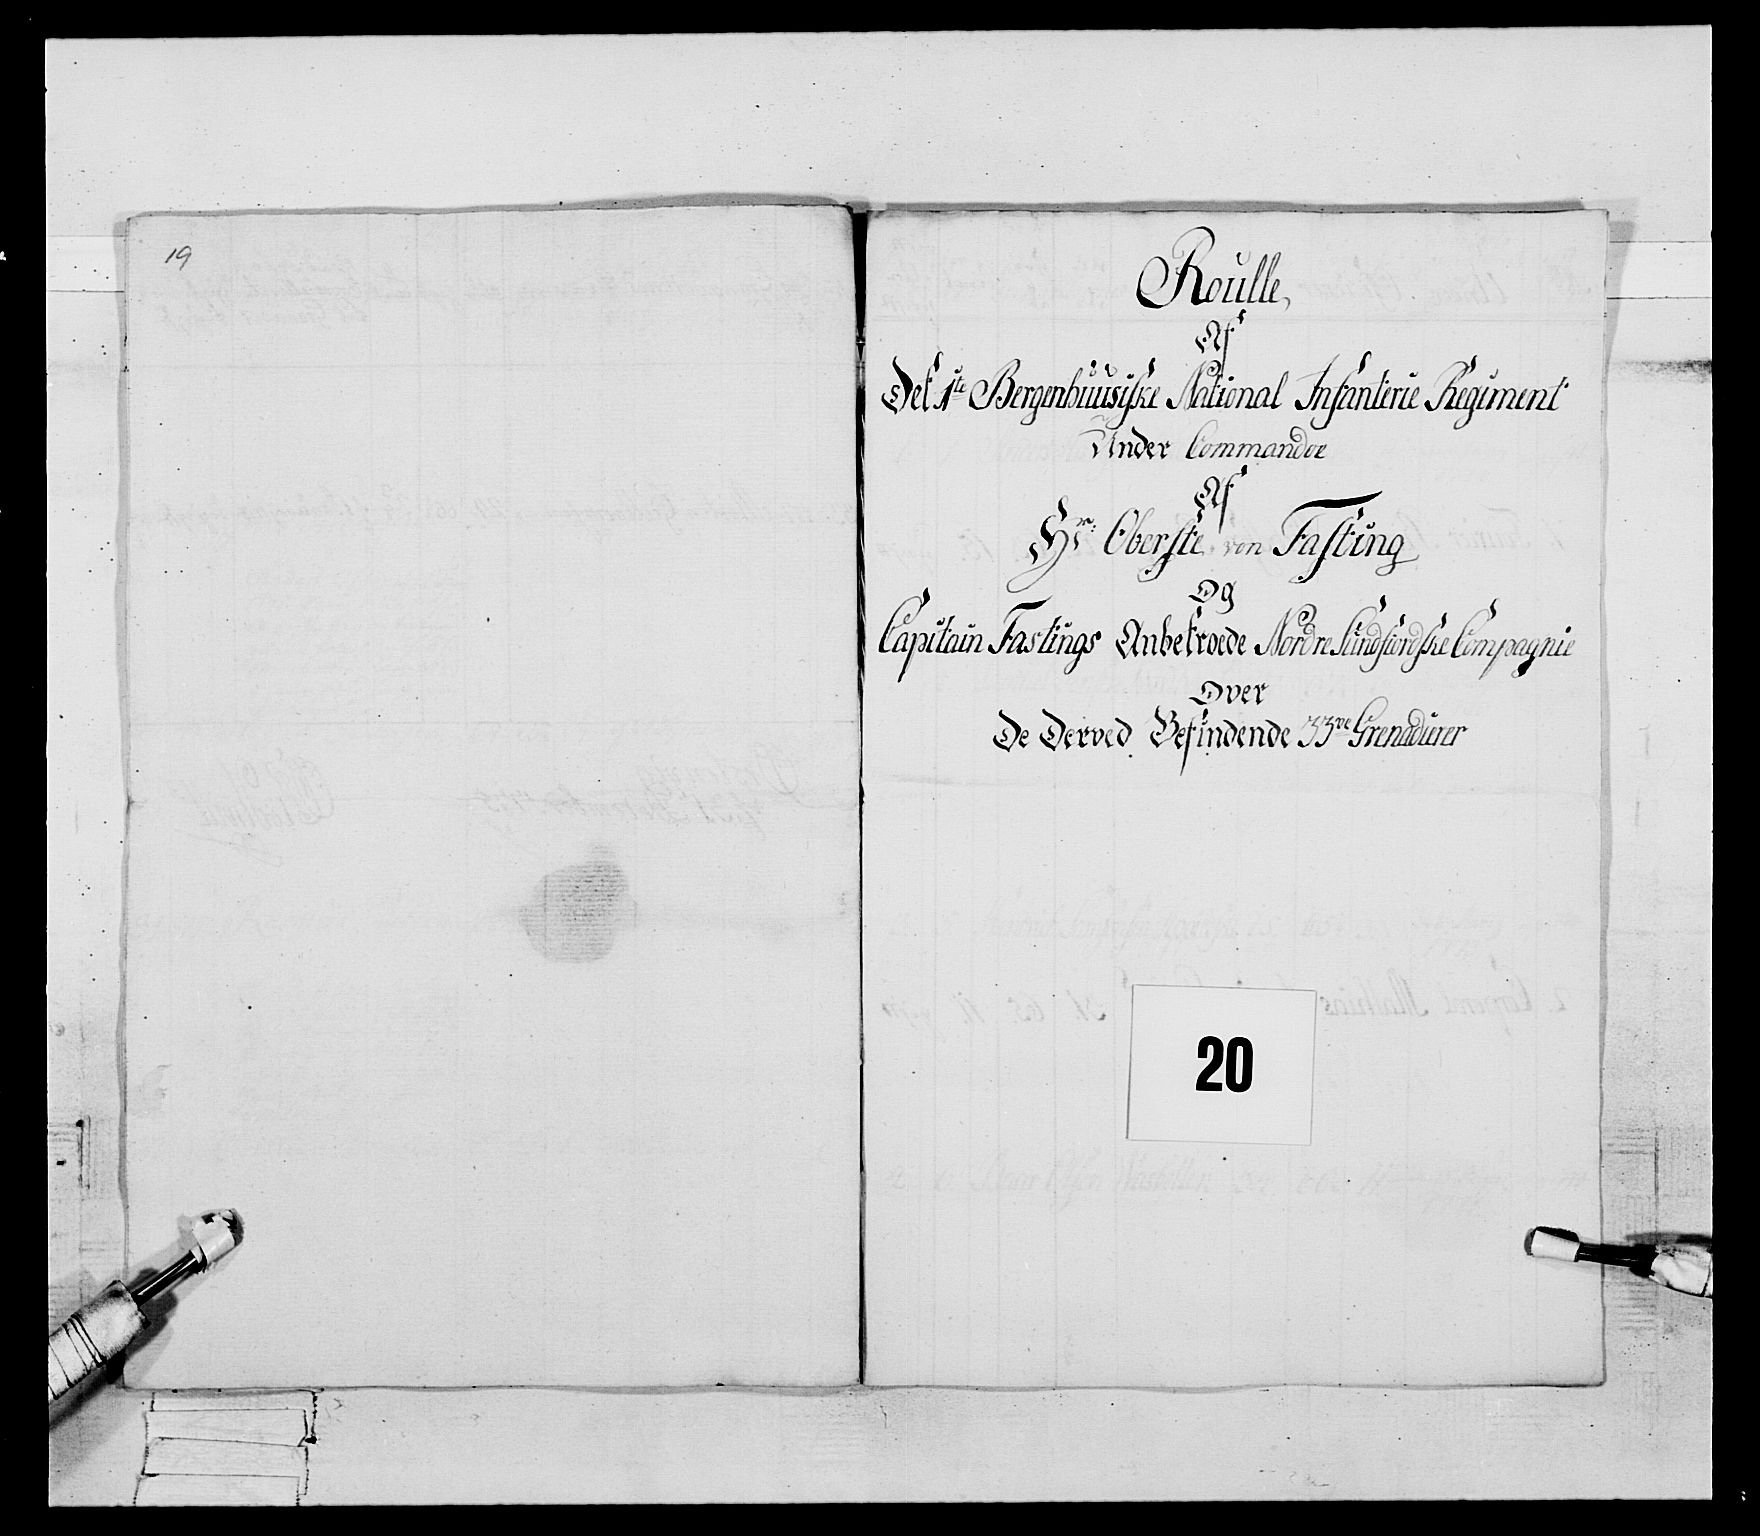 19
Roulle,
Af
Det 1ste Bergenhuusiske National Infanterie Regiment
Under Commandoe
Af
Hr: Oberste von Fasting
Og
Capitain Fastings Anbetroede Nordre Sundfiordske Compagnie
Over
De Derved Befindende 33ve Grenadierer
20